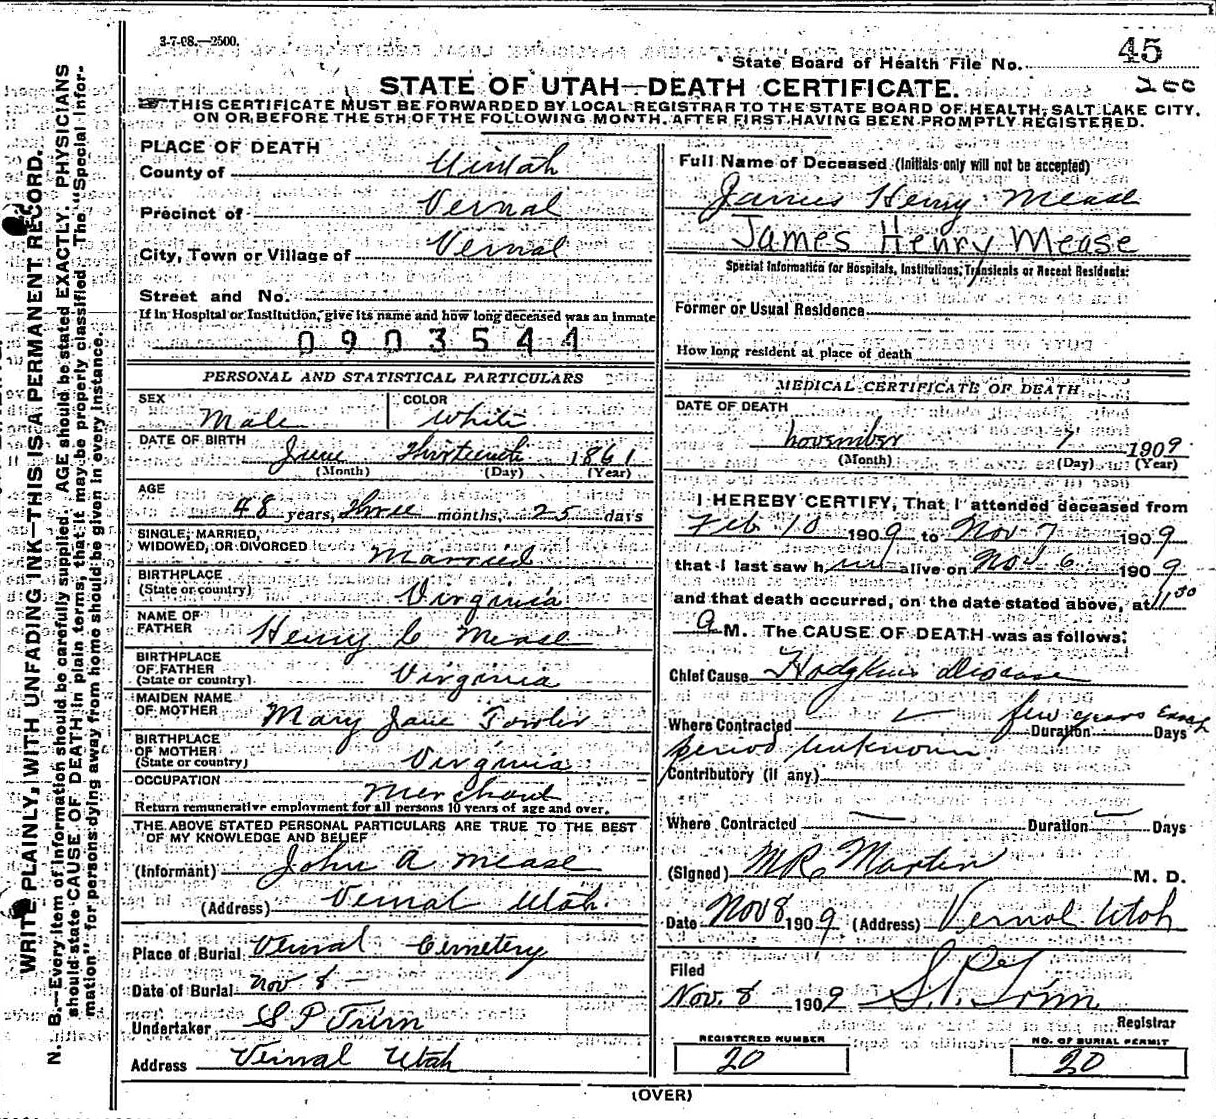 3-7-08.—2500.
45
State Board of Health File No.
200
STATE OF UTAH—DEATH CERTIFICATE.
THIS CERTIFICATE MUST BE FORWARDED BY LOCAL REGISTRAR TO THE STATE BOARD OF HEALTH, SALT LAKE CITY,
ON OR BEFORE THE 5TH OF THE FOLLOWING MONTH, AFTER FIRST HAVING BEEN PROMPTLY REGISTERED.
WRITE PLAINLY, WITH UNFADING INK—THIS IS A PERMANENT RECORD.
N. B.—Every item of information should be carefully supplied. AGE should be stated EXACTLY. PHYSICIANS
should state CAUSE OF DEATH in plain terms, that it may be properly classified. The "Special Infor-
mation" for persons dying away from home should be given in every instance.
PLACE OF DEATH
County of Uintah
Precinct of Vernal
City, Town or Village of Vernal
Street and No.
If in Hospital or Institution, give its name and how long deceased was an inmate
0903544
PERSONAL AND STATISTICAL PARTICULARS
SEX Male COLOR White
DATE OF BIRTH June Thirteenth 1861
(Month) (Day) (Year)
AGE
48 years, Three months, 25 days
SINGLE, MARRIED,
WIDOWED, OR DIVORCED Married
BIRTHPLACE
(State or country) Virginia
NAME OF
FATHER Henry C Mease
BIRTHPLACE
OF FATHER
(State or country) Virginia
MAIDEN NAME
OF MOTHER Mary Jane Fowler
BIRTHPLACE
OF MOTHER
(State or country) Virginia
OCCUPATION Merchant
Return remunerative employment for all persons 10 years of age and over.
THE ABOVE STATED PERSONAL PARTICULARS ARE TRUE TO THE BEST
OF MY KNOWLEDGE AND BELIEF
(Informant) John A Mease
(Address) Vernal Utah.
Place of Burial Vernal Cemetery
Date of Burial Nov 8 —
Undertaker S P Trim
Address Vernal Utah
Full Name of Deceased (Initials only will not be accepted)
James Henry Mease
James Henry Mease
Special Information for Hospitals, Institutions, Transients or Recent Residents:
Former or Usual Residence
How long resident at place of death
MEDICAL CERTIFICATE OF DEATH
DATE OF DEATH
November 7 1909
(Month) (Day) (Year)
I HEREBY CERTIFY, That I attended deceased from
Feb 10 1909 to Nov 7 1909
that I last saw him alive on Nov 6 1909
and that death occurred, on the date stated above, at 1:30
A M. The CAUSE OF DEATH was as follows:
Chief Cause Hodgkins disease
Where Contracted few years Exact
Duration Days
period unknown
Contributory (if any)
Where Contracted — Duration — Days
(Signed) M R Martin M. D.
Date Nov 8 1909 (Address) Vernal Utah
Filed
Nov. 8 1909 S. P. Trim
Registrar
REGISTERED NUMBER
20
NO. OF BURIAL PERMIT
20
(OVER)